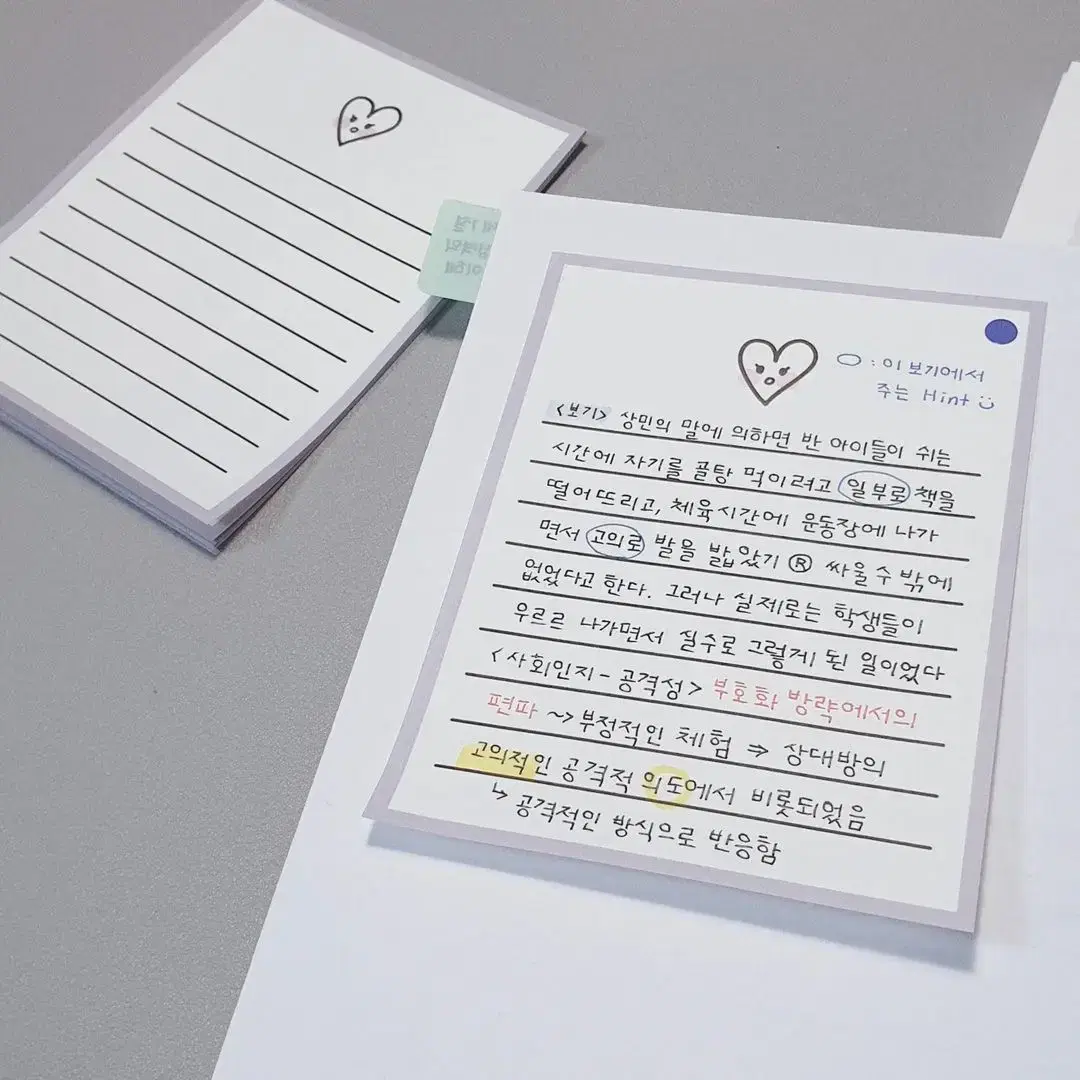 ○ : 이 보기에서
주는 Hint
<보기> 상민의 말에 의하면 반 아이들이 쉬는
시간에 자기를 골탕 먹이려고 일부로 책을
떨어뜨리고, 체육시간에 운동장에 나가
면서 고의로 발을 밟았기 ⓡ 싸울 수 밖에
없었다고 한다. 그러나 실제로는 학생들이
우르르 나가면서 실수로 그렇게 된 일이었다
<사회인지-공격성> 부호화 방략에서의
편파 ~> 부정적인 체험 ⇒ 상대방의
고의적인 공격적 의도에서 비롯되었음
↳ 공격적인 방식으로 반응함